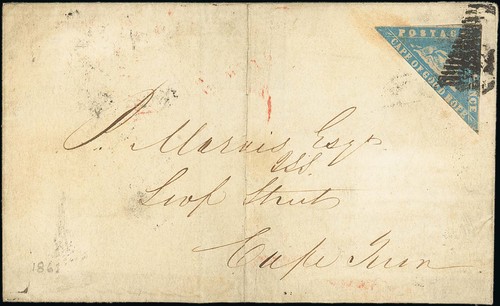 POSTAGE
CAPE OF GOOD HOPE
P. Marais Esqr
Loop Street
Cape Town
1861